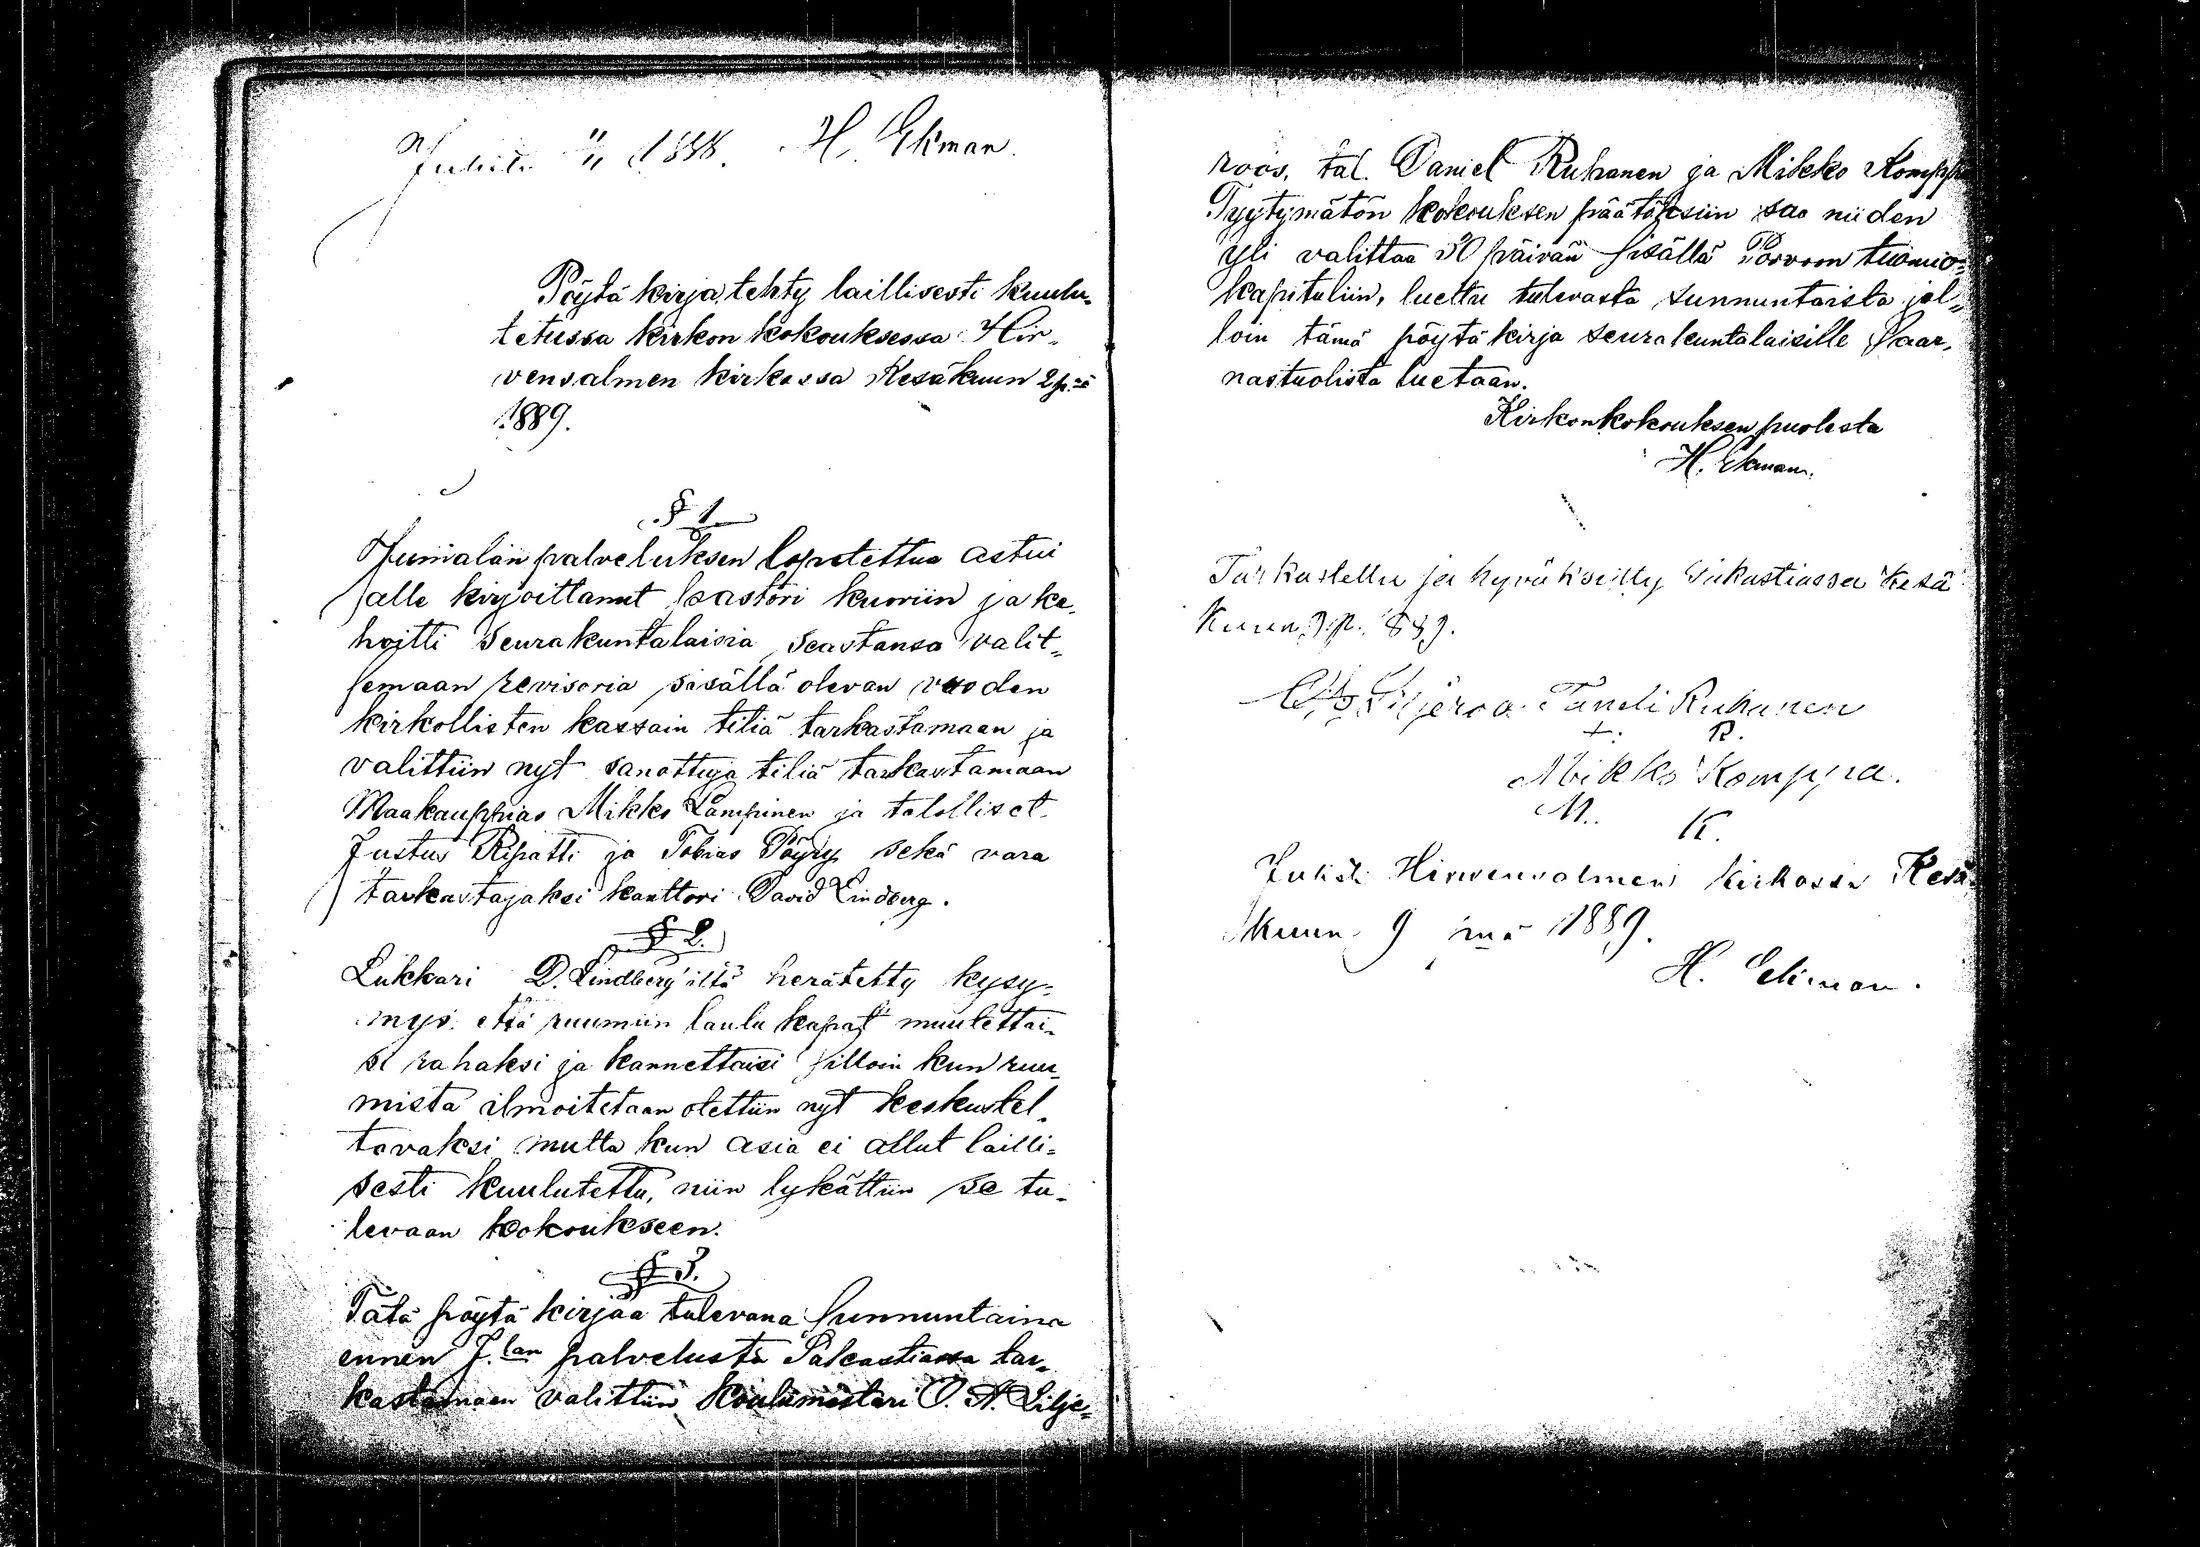 Julistı 11/11 1888. H. Ekman.
Pöytäkirja, tehty laillisesti kuulu-
tetussa kirkon kokouksessa Hir-
vensalmen kirkossa Kesäkuun 2 p:nä
1889.
§ 1
Jumalan palveluksen lopetettua astui
alle kirjoittanut pastori kuoriin ja ke-
hoitti seurakuntalaisia seastansa valit-
semaan revisoria sisällä olevan vuoden
kirkollisten kassain tiliä tarkastamaan ja
valittiin nyt sanottuja tiliä tarkastamaan
Maakauppias Mikko Lampinen ja talolliset
Justus Ripatti ja Tobias Pöyry sekä vara
tarkastajaksi kanttori David Lindberg.
§ 2.
Lukkari D. Lindberg'iltä herätetty kysy-
mys. että ruumiin laulu kapat muutettai-
si rahaksi ja kannettaisi silloin kun ruu-
mista ilmoitetaan otettiin nyt keskustel-
tavaksi mutta kun asia ei ollut lailli-
sesti kuulutettu, niin lykättiin se tu-
levaan kokoukseen.
§ 3.
Tätä pöytä kirjaa tulevana sunnuntaina
ennen J.lan palvelusta Sakastiassa tar-
kastamaan valittiin Koulumestari O. A. Lilje-
roos, tal. Daniel Ruhanen ja Mikko Komppa
Tyytymätön kokouksen päätöksiin saa niiden
yli valittaa 30 päivän sisällä Porvoon tuomio-
kapituliin, luettu tulevasta sunnuntaista jol-
loin tämä pöytäkirja seurakuntalaisille Saar-
nastuolista luetaan.
Kirkonkokouksen puolesta
H. Ekman.
Tarkastettu ja hyväksytty Sakastiassa Kesä
kuun 9 p. 1889.
Liljeroos Taneli Ruhanen
T. R.
Mikko Komppa.
M. K.
Julisti Hirvensalmen kirkossa Kesä-
kuun 9 nä 1889.
H. Ekman.